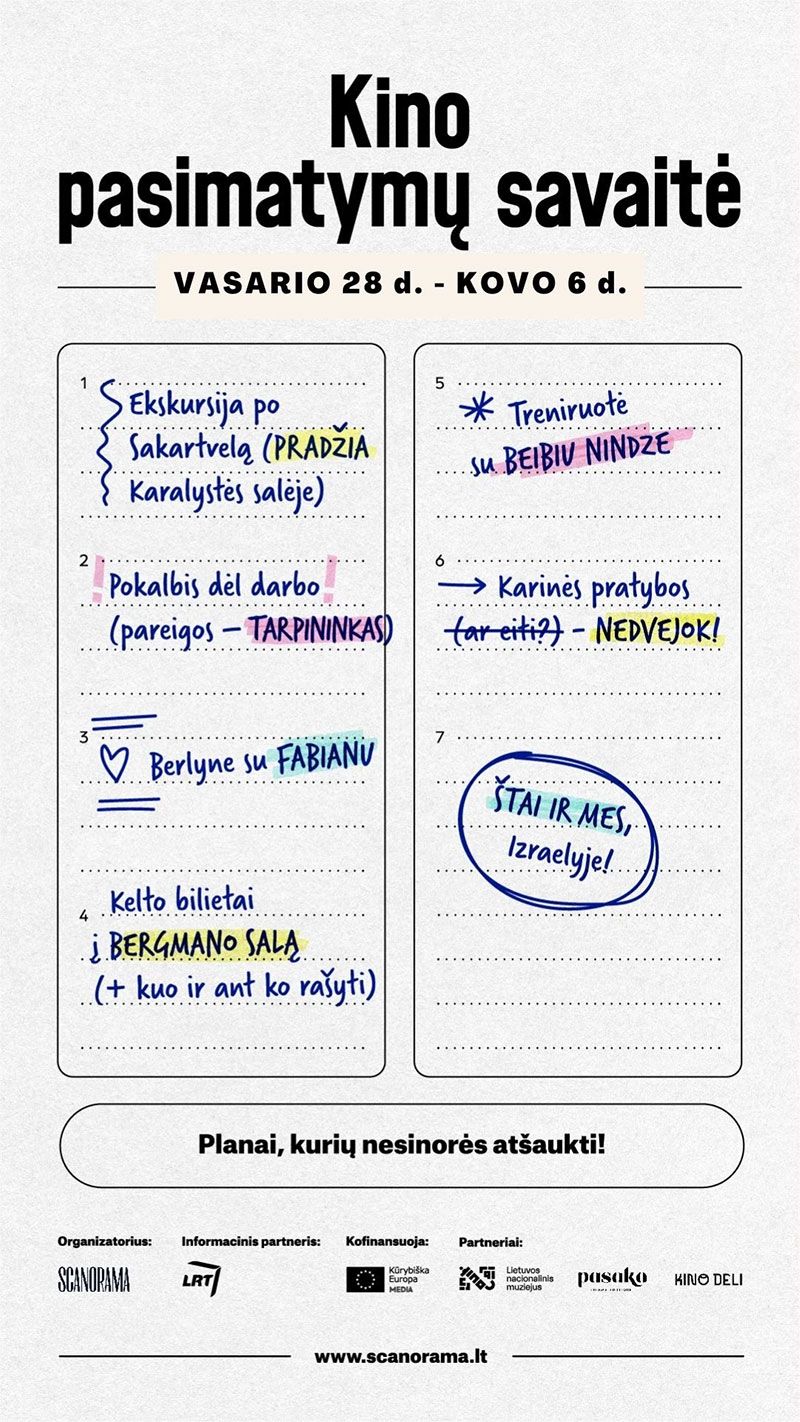 Kino
pasimatymų savaitė
VASARIO 28 d. - KOVO 6 d.
1
Ekskursija po
Sakartvelą (PRADŽIA
Karalystės salėje)
2
! Pokalbis dėl darbo !
(pareigos – TARPININKAS)
3
Berlyne su FABIANU
4
Kelto bilietai
į BERGMANO SALĄ
(+ kuo ir ant ko rašyti)
5
Treniruotė
su BEIBIU NINDZE
6
→ Karinės pratybos
(ar eiti?) – NEDVEJOK!
7
ŠTAI IR MES,
Izraelyje!
Planai, kurių nesinorės atšaukti!
Organizatorius: Informacinis partneris: Kofinansuoja: Partneriai:
SCANORAMA
LRT
Kūrybiška
Europa
MEDIA
Lietuvos
nacionalinis
muziejus
pasaka
KINO DELI
www.scanorama.lt